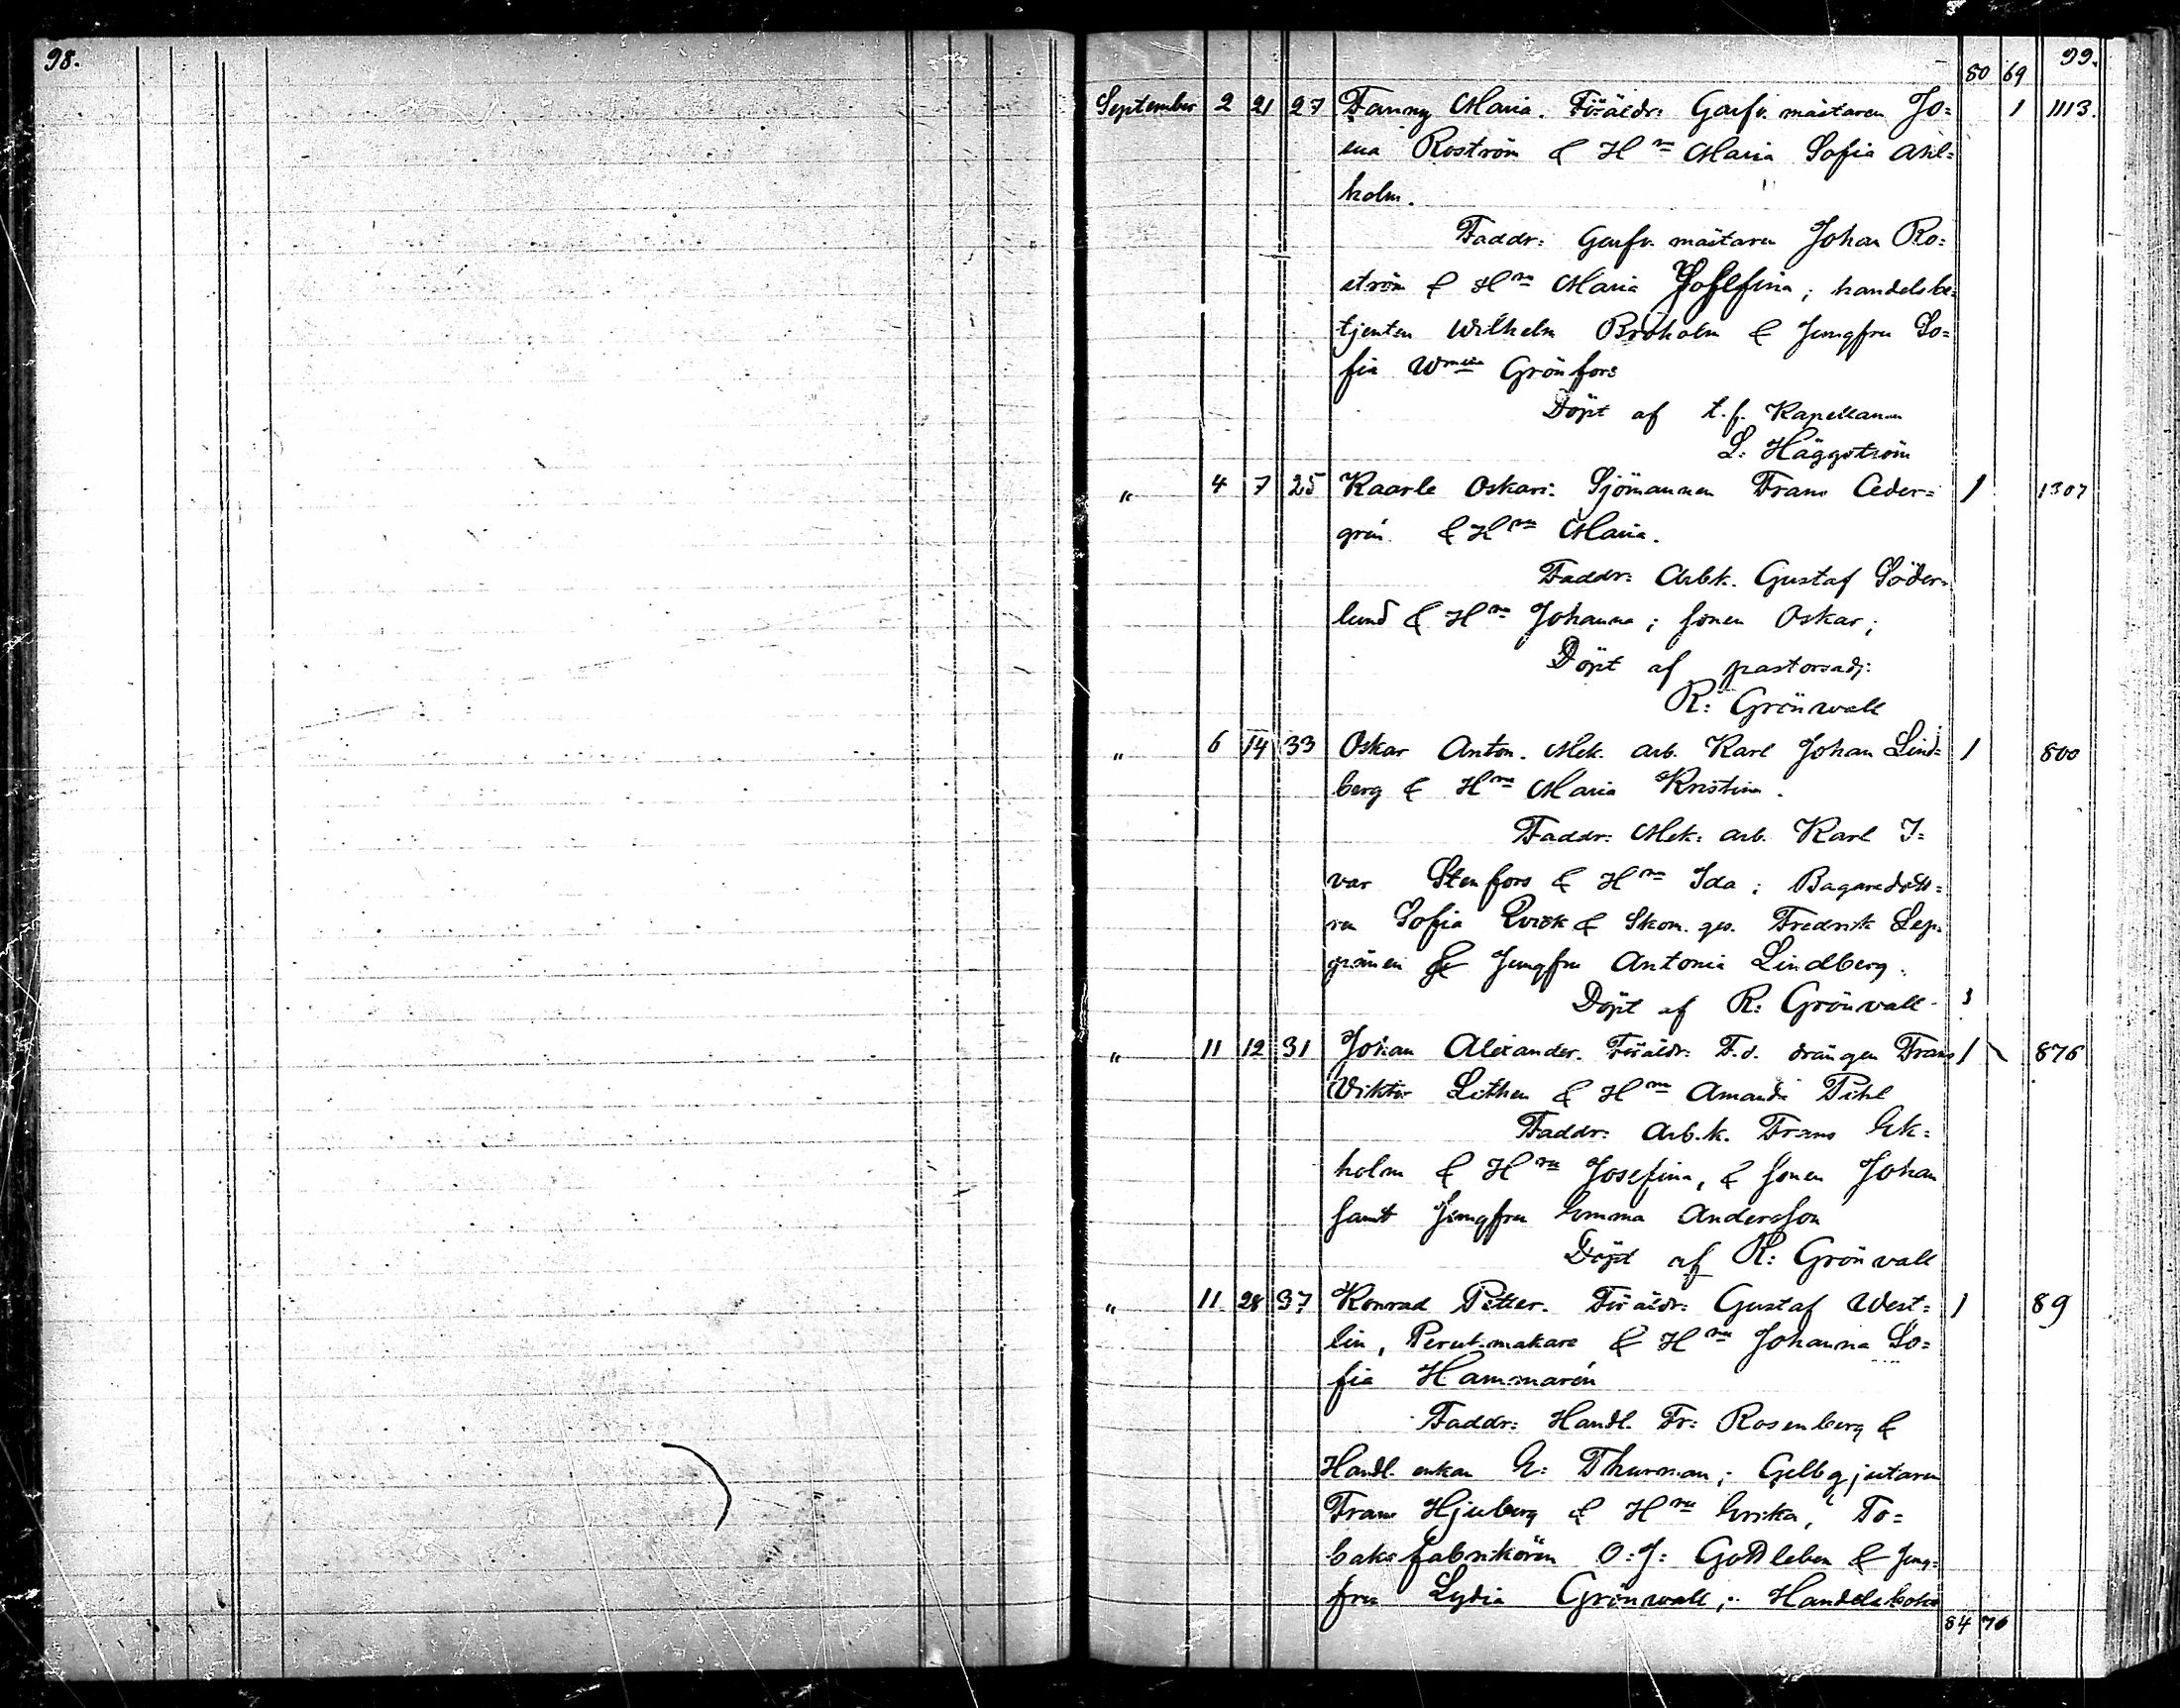 98.
99.
80 69
September 2 21 27 Fanny Maria. Föräldr: Garfv. mästaren Jo= 1 1113.
sua Roström & H:m Maria Sofia Ahl=
holm.
Faddr: Garfv. mästaren Johan Ro=
ström & H:m Maria Josefina; handelsbe=
tjenten Wilhelm Broholm & Jungfru So=
fia Grönfors
Döpt af t.f. Kapellanen
L: Häggström
" 4 7 25 Kaarle Oskari: Sjömannen Frans Ceder= 1 1307
grén & H:m Maria.
Faddr: Arbk. Gustaf Söder=
lund & H:m Johanna; sonen Oskar;
Döpt af pastorsadj:
R: Grönwall
" 6 14 33 Oskar Anton. Mek. arb. Karl Johan Lind= 1 800
berg & H:m Maria Kristina.
Faddr: Mek: arb. Karl I=
var Stenfors & H:m Ida; Bagaredott=
ren Sofia Qvick & Skom. ges. Fredrik Lep=
pänen & Jungfru Antonia Lindberg.
Döpt af R: Grönvall
" 11 12 31 Johan Alexander. Föräldr: F.d. drängen Frans 1 876
Viktor Lithen & H:m Amanda Pihl
Faddr: Arb.k. Frans Ek=
holm & H:m Josefina, & sonen Johan
samt Jungfru Emma Andersson
Döpt af R: Grönvall
" 11 28 37 Konrad Petter. Föräldr: Gustaf West= 1 89
lin, Peruk.makare & H:m Johanna So=
fia Hammarén
Faddr: Handl. Fr: Rosenberg &
Handl. enkan E: Thurman; Gelbgjutaren
Frans Hjulberg & H:m Erika, To=
baksfabrikören O: J: Gottleben & Jung=
fru Lydia Grönwall;
84 70